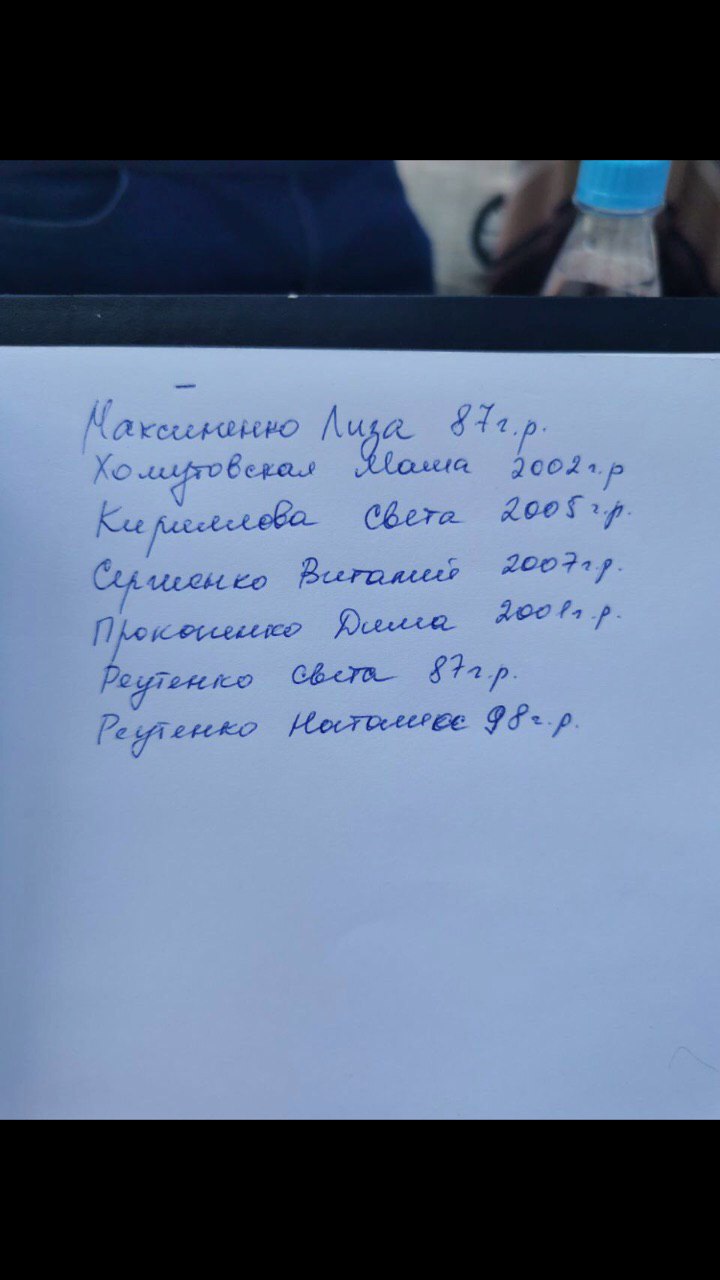 Максименко Лиза 87г.р.
Хомутовская Маша 2002г.р
Кириллова Света 2005г.р.
Сергиенко Виталий 2007г.р.
Прокопенко Дима 2001г.р.
Реутенко Света 87г.р.
Реутенко Наталия 98г.р.